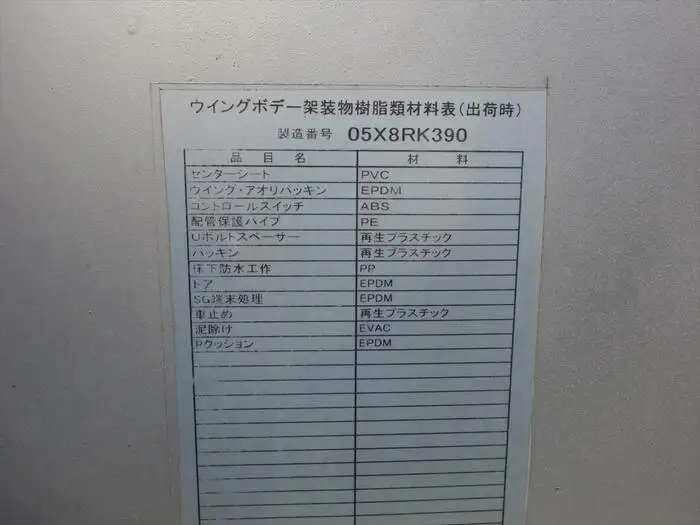 ウイングボデー架装物樹脂類材料表(出荷時)
製造番号 05X8RK390
品目名 材料
センターシート PVC
ウイング・アオリパッキン EPDM
コントロールスイッチ ABS
配管保護パイプ PE
Uボルトスペーサー 再生プラスチック
パッキン 再生プラスチック
床下防水工作 PP
ドア EPDM
SG端末処理 EPDM
車止め 再生プラスチック
泥除け EVAC
Pクッション EPDM